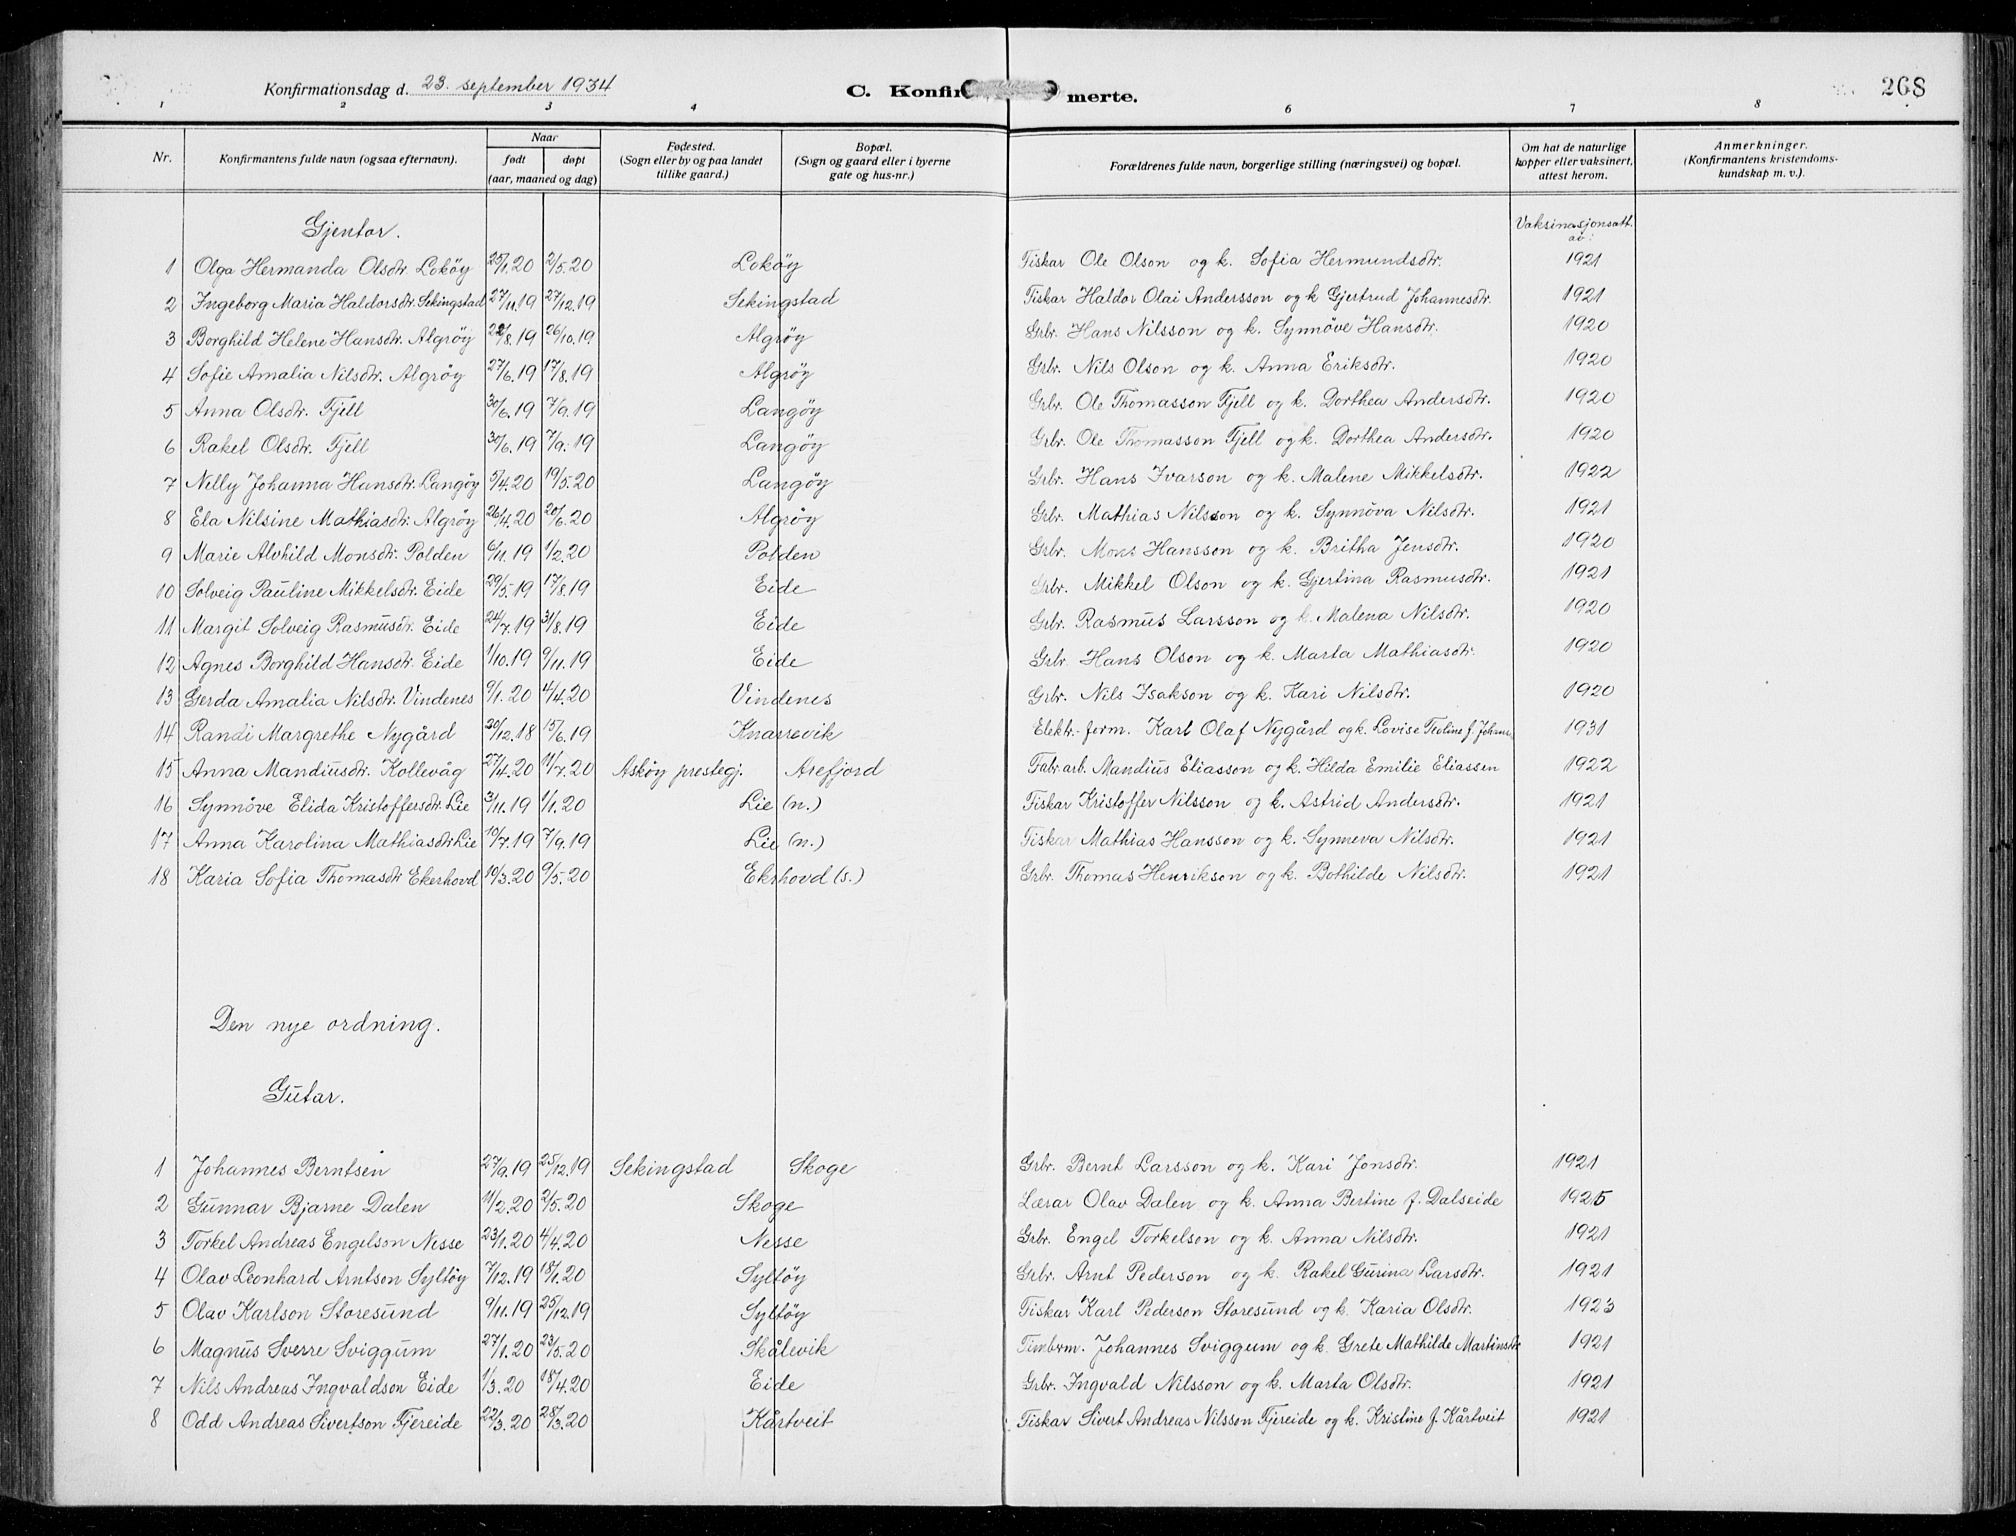 Konfirmationsdag d. 23. september 1934 C. Konfir merte. 268
1 2 3 4 6 7 8
Nr. Konfirmantens fulde navn (ogsaa efternavn). Naar født døpt (aar, maaned og dag) Fødested. (Sogn eller by og paa landet tillike gaard.) Bopæl. (Sogn og gaard eller i byerne gate og hus-nr.) Forældrenes fulde navn, borgerlige stilling (næringsvei) og bopæl. Om hat de naturlige kopper eller vaksinert, attest herom. Anmerkninger. (Konfirmantens kristendoms-kundskap m. v.).
Gjentor. Vaksinasjonsatt. av:
1 Olga Hermanda Olsdtr. Lokøy 25/1.20 2/5.20 Lokøy Fiskar Ole Olson og k. Sofia Hermundsdtr. 1921
2 Ingeborg Maria Haldorsdtr. Sekingstad 27/11.19 27/12.19 Sekingstad Fiskar Haldor Olai Andersson og k Gjertrud Johannesdtr. 1921
3 Borghild Helene Hansdtr. Algrøy 22/8.19 26/10.19 Algrøy Grbr. Hans Nilsson og k. Synnöve Hansdtr. 1920
4 Sofie Amalia Nilsdtr. Algrøy 27/6.19 17/8.19 Algrøy Grbr. Nils Olson og k. Anna Eriksdtr. 1920
5 Anna Olsdtr. Fjell 30/6.19 7/9.19 Langøy Grbr. Ole Thomasson Fjell og k. Dorthea Andersdtr. 1920
6 Rakel Olsdtr. Fjell 30/6.19 7/9.19 Langøy Grbr. Ole Thomasson Fjell og k. Dorthea Andersdtr. 1920
7 Nelly Johanna Hansdtr. Langøy 5/4.20 19/5.20 Langøy Grbr. Hans Ivarson og k. Malene Mikkelsdtr. 1922
8 Ela Nilsine Mathiasdtr. Algrøy 26/4.20 20/6.20 Algrøy Grbr. Mathias Nilsson og k. Synnöva Nilsdtr. 1921
9 Marie Alvhild Monsdtr. Polden 6/11.19 1/2.20 Polden Grbr. Mons Hansson og k. Britha Jensdtr. 1920
10 Solveig Pauline Mikkelsdtr. Eide 29/5.19 17/8.19 Eide Grbr. Mikkel Olson og k. Gjertina Rasmusdtr. 1921
11 Margit Solveig Rasmusdtr. Eide 24/7.19 31/8.19 Eide Grbr. Rasmus Larsson og k. Malena Nilsdtr. 1920
12 Agnes Borghild Hansdtr. Eide 1/10.19 9/11.19 Eide Grbr. Hans Olson og k. Marta Mathiasdtr. 1920
13 Gerda Amalia Nilsdtr. Vindenes 9/1.20 4/4.20 Vindenes Grbr. Nils Isakson og k. Kari Nilsdtr. 1920
14 Randi Margrethe Nygård 30/12.18 15/6.19 Knarrevik Elektr. form. Karl Olaf Nygård og k. Lovise Teoline f. 1931
15 Anna Mandiusdtr. Kollevåg 27/4.20 11/7.20 Askøy prestegj. Arefjord Fabr.arb. Mandius Eliasson og k. Hilda Emilie Eliassen 1922
16 Synnöve Elida Kristoffersdtr. Lie 3/11.19 1/1.20 Lie (n.) Fiskar Kristoffer Nilsson og k. Astrid Andersdtr. 1921
17 Anna Karolina Mathiasdtr Lie 10/7.19 7/9.19 Lie (n.) Fiskar Mathias Hansson og k. Synneva Nilsdtr. 1921
18 Karia Sofia Thomasdtr Ekerhovd 10/3.20 9/5.20 Ekrhovd (s.) Grbr. Thomas Henrikson og k. Bothilde Nilsdtr. 1921
Den nye ordning.
Gutar.
1 Johannes Berntsen 27/9.19 25/12.19 Sekingstad Skoge Grbr. Bernt Larsson og k. Kari Jonsdtr. 1921
2 Gunnar Bjarne Dalen 11/2.20 2/5.20 Skoge Lærar Olav Dalen og k. Anna Bertine f. Dalseide 1925
3 Torkel Andreas Engelson Nesse 23/1.20 4/4.20 Nesse Grbr. Engel Torkelson og k. Anna Nilsdtr. 1921
4 Olav Leonhard Arntson Syltøy 7/12.19 18/1.20 Syltøy Grbr. Arnt Pederson og k. Rakel Gurina Larsdtr. 1921
5 Olav Karlson Storesund 9/11.19 25/12.19 Syltøy Fiskar Karl Pederson Storesund og k. Karia Olsdtr. 1923
6 Magnus Sverre Sviggum 27/1.20 23/5.20 Skålevik Timbrm. Johannes Sviggum og k. Grete Mathilde Martinsdtr 1921
7 Nils Andreas Ingvaldson Eide 1/3.20 18/4.20 Eide Grbr. Ingvald Nilsson og k. Marta Olsdtr. 1921
8 Odd Andreas Sivertson Fjereide 22/3.20 28/3.20 Kårtveit Fiskar Sivert Andreas Nilsson Fjereide og k. Kristine f. Kårtveit 1921